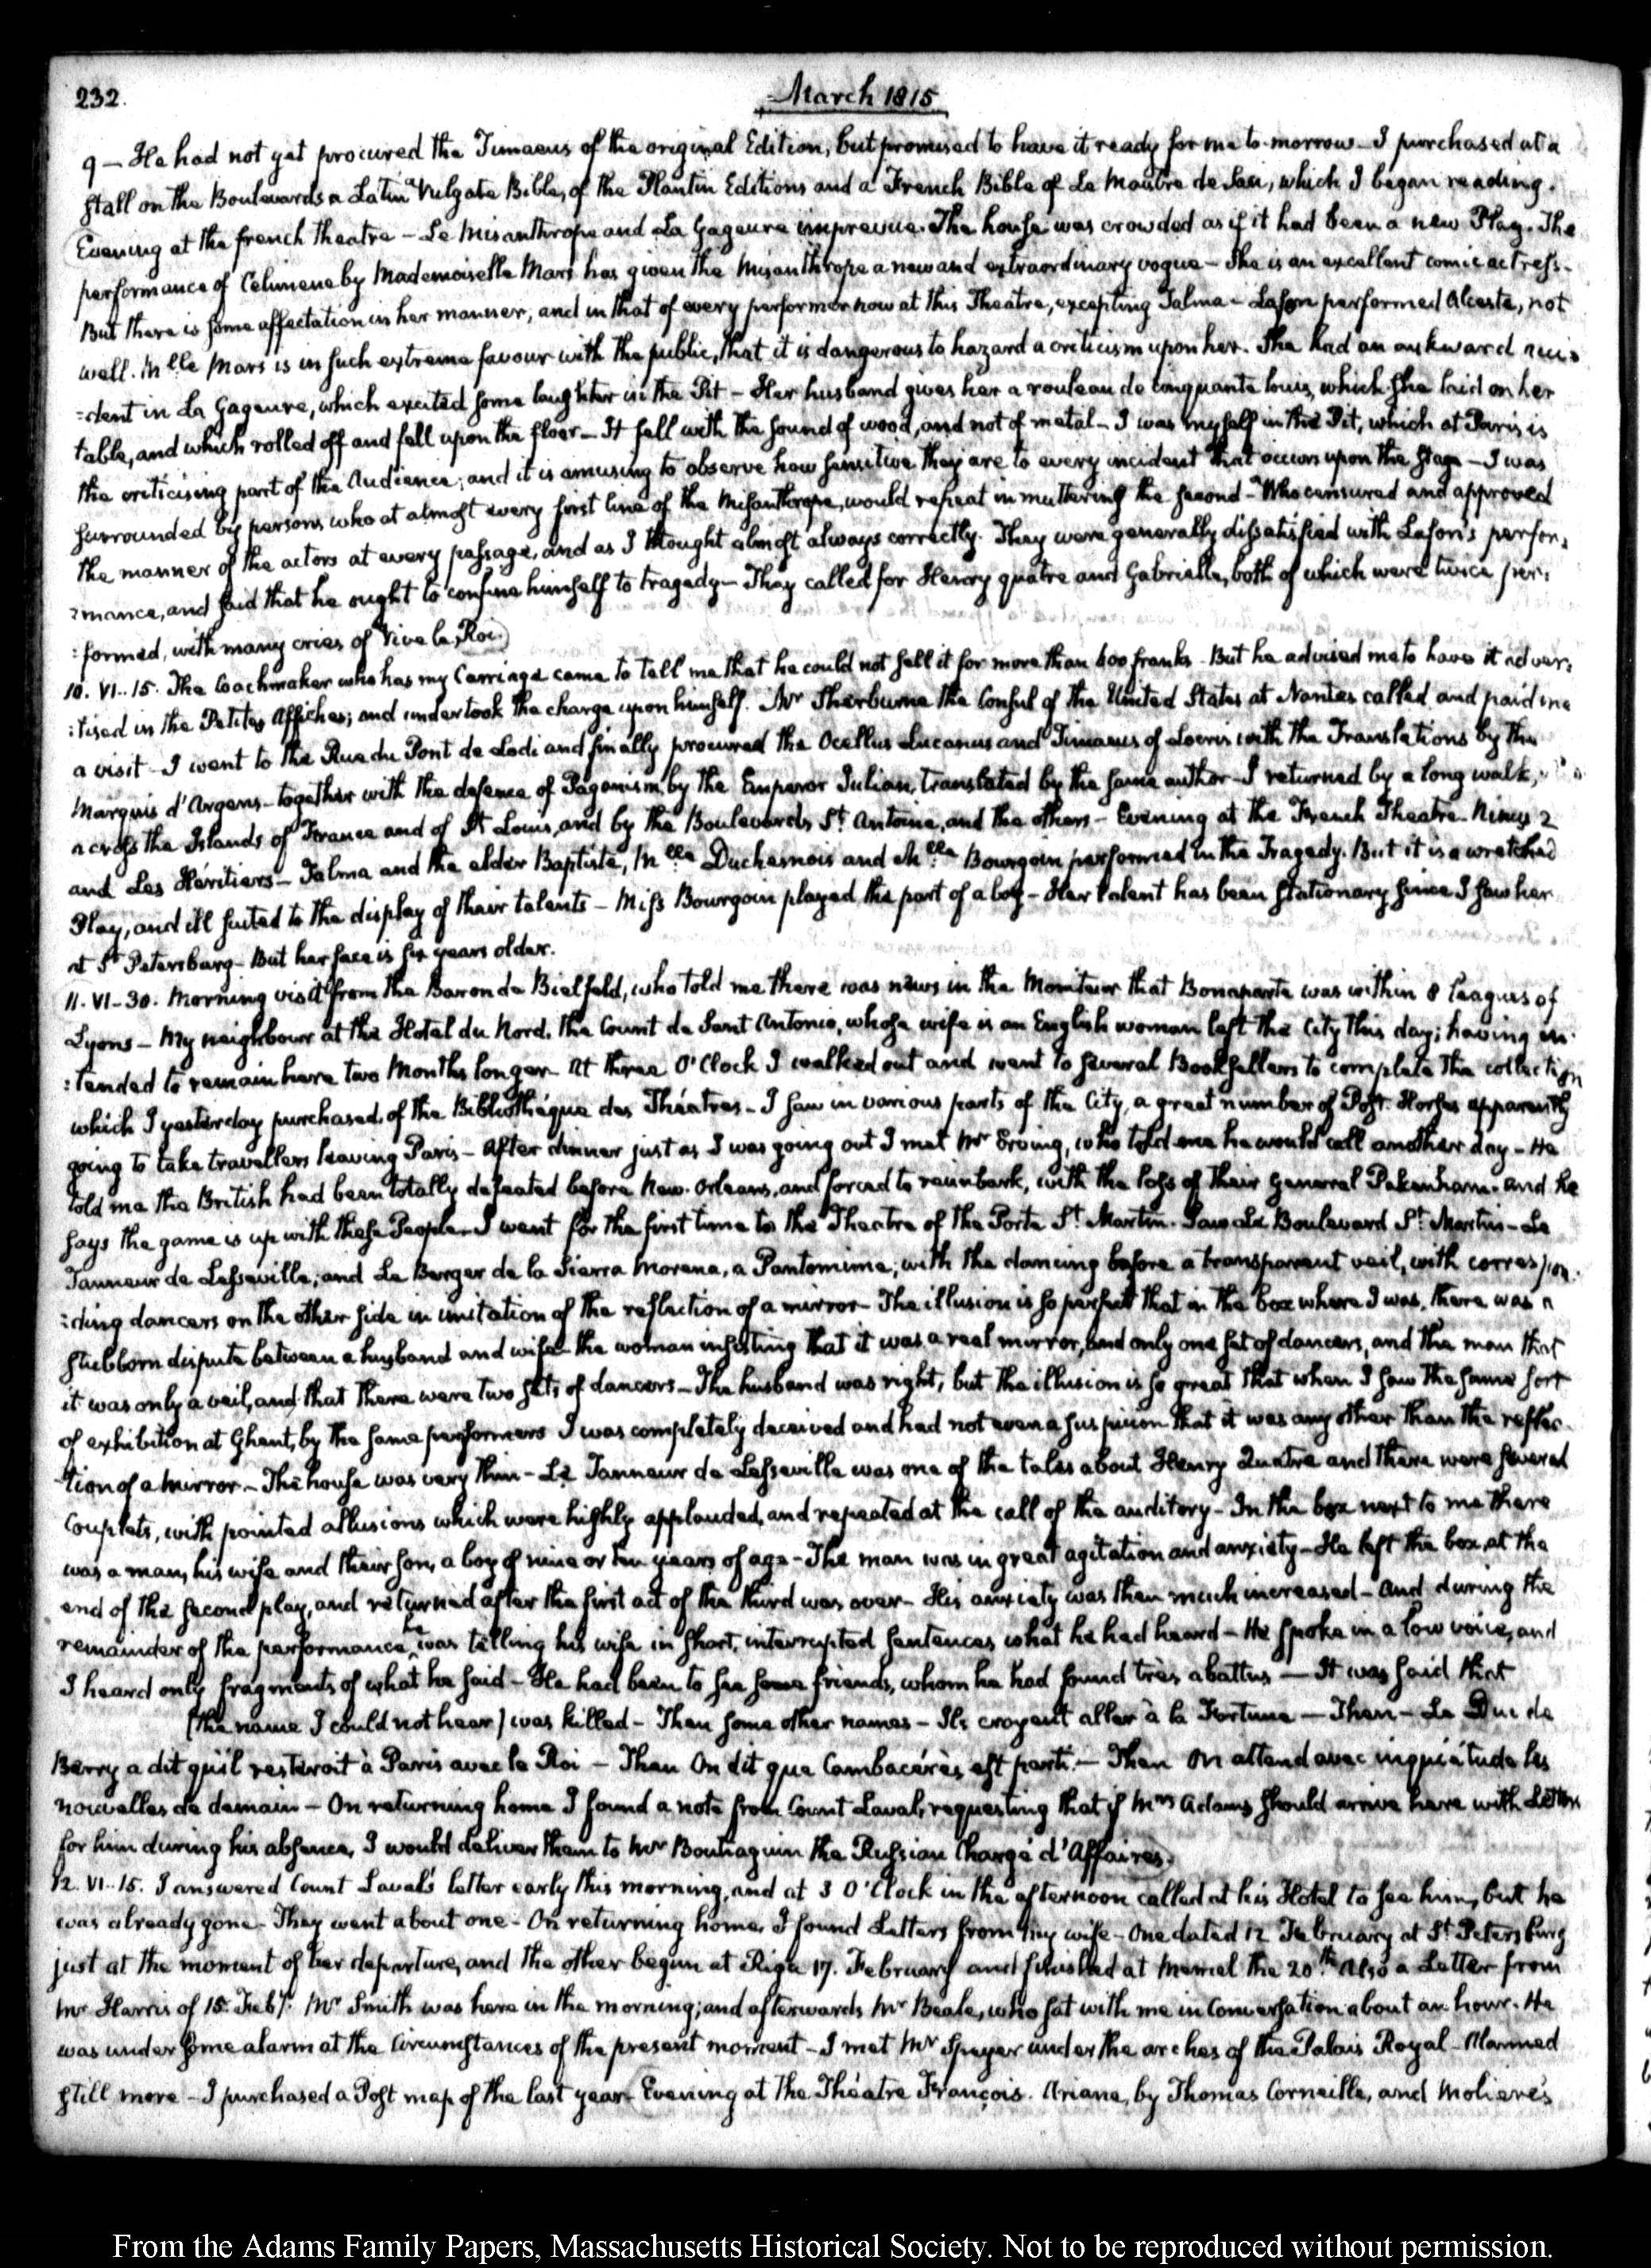 232.
March 1815
9 — He had not yet procured the Timaeus of the original Edition, but promised to have it ready for me to-morrow — I purchased at a
stall on the Boulevards a Latin Vulgate Bible, of the Plantin Editions and a French Bible of Le Maistre de Saci, which I began reading.
Evening at the french theatre — Le Misanthrope and La Gageure imprevue. The house was crowded as if it had been a new Play. The
performance of Celimene by Mademoiselle Mars has given the Misanthrope a new and extraordinary vogue — She is an excellent comic actress —
But there is some affectation in her manner, and in that of every performer now at this Theatre, excepting Talma — Lafon performed Alceste, not
well. Mlle Mars is in such extreme favour with the public, that it is dangerous to hazard a criticism upon her. She had an aukward acci=
=dent in La Gageure, which excited some laughter in the Pit — Her husband gives her a rouleau de cinquante louis, which she laid on her
table, and which rolled off and fell upon the floor — It fell with the sound of wood, and not of metal — I was myself in the Pit, which at Paris is
the criticising part of the Audience; and it is amusing to observe how sensitive they are to every incident that occurs upon the stage — I was
surrounded by persons who at almost every first line of the Misanthrope, would repeat in muttering the second — Who censured and approved
the manner of the actors at every passage, and as I thought almost always correctly. They were generally dissatisfied with Lafon's perfor=
=mance, and said that he ought to confine himself to tragedy — They called for Henry quatre and Gabrielle, both of which were twice per=
=formed, with many cries of Vive le Roi.
10. VI..15. The Coachmaker who has my Carriage came to tell me that he could not sell it for more than 600 franks. But he advised me to have it adver=
=tised in the Petites Affiches; and undertook the charge upon himself. Mr Sherburne the Consul of the United States at Nantes called and paid me
a visit — I went to the Rue du Pont de Lodi and finally procured the Ocellus Lucanus and Timaeus of Locris with the Translations by the
Marquis d'Argens — together with the defence of Paganism by the Emperor Julian, translated by the same author — I returned by a long walk,
across the Islands of France and of St Louis, and by the Boulevards St. Antoine, and the others — Evening at the French Theatre. Ninus 2
and Les Héritiers — Talma and the elder Baptiste, Mlle Duchesnois and Mlle Bourgoin performed in the Tragedy. But it is a wretched
Play, and ill suited to the display of their talents — Miss Bourgoin played the part of a boy — Her talent has been stationary since I saw her
at St Petersburg — But her face is six years older.
11. VI-30. Morning visit from the Baron de Bielfeld, who told me there was news in the Moniteur that Bonaparte was within 8 leagues of
Lyons — My neighbour at the Hotel du Nord. The Count de Sant Antonio, whose wife is an English woman left the City this day; having in=
=tended to remain here two Months longer. At three O'Clock I walked out and went to several Booksellers to complete the collection
which I yesterday purchased, of the Bibliothéque des Théatres — I saw in various parts of the City, a great number of Post Horses apparently
going to take travellers leaving Paris — After dinner just as I was going out I met Mr Erving, who told me he would call another day — He
told me the British had been totally defeated before New-Orleans, and forced to reimbark, with the loss of their General Pakenham. and he
says the game is up with these People. I went for the first time to the Theatre of the Porte St. Martin. Saw Le Boulevard St. Martin — Le
Tanneur de Lesseville; and Le Berger de la Sierra Morena, a Pantomime; with the dancing before a transparent veil, with correspon=
=ding dancers on the other side in imitation of the reflection of a mirror — The illusion is so perfect that in the box where I was, there was a
stubborn dispute between a husband and wife — the woman insisting that it was a real mirror, and only one set of dancers, and the man that
it was only a veil, and that there were two sets of dancers — The husband was right, but the illusion is so great that when I saw the same sort
of exhibition at Ghent, by the same performers I was completely deceived and had not even a suspicion that it was any other than the reflec=
tion of a mirror. — The house was very thin — Le Tanneur de Lesseville was one of the tales about Henry Quatre and there were several
Couplets, with pointed allusions which were highly applauded, and repeated at the call of the auditory — In the box next to me there
was a man, his wife and their son, a boy of nine or ten years of age — The man was in great agitation and anxiety — He left the box, at the
end of the second play, and returned after the first act of the third was over — His anxiety was then much increased — And during the
remainder of the performance he was telling his wife in short, interrupted sentences what he had heard — He spoke in a low voice, and
I heard only fragments of what he said — He had been to see some friends, whom he had found très abattus — It was said that
(the name I could not hear) was killed — Then some other names — Ils croyent aller à la Fortune — Then — Le Duc de
Berry a dit qu'il resteroit à Paris avec le Roi — Then On dit que Cambacérès est parti. — Then On attend avec inquiétude les
nouvelles de demain — On returning home I found a note from Count Laval, requesting that if Mrs Adams should arrive here with Letters
for him during his absence, I would deliver them to Mr Boutiaguin the Russian Chargé d'Affaires.
12. VI..15. I answered Count Laval's letter early this morning, and at 3 O'Clock in the afternoon called at his Hotel to see him, but he
was already gone — They went about one — On returning home, I found Letters from my wife — One dated 12 February at St. Petersburg
just at the moment of her departure, and the other begun at Riga 17. February and finished at Memel the 20th Also a Letter from
Mr Harris of 15. Feby. Mr Smith was here in the morning; and afterwards Mr Beale, who sat with me in Conversation about an hour. He
was under some alarm at the circumstances of the present moment — I met Mr Speyer under the arches of the Palais Royal — Alarmed
still more — I purchased a Post map of the last year. Evening at the Théatre François. Ariane, by Thomas Corneille, and Moliere's
From the Adams Family Papers, Massachusetts Historical Society. Not to be reproduced without permission.